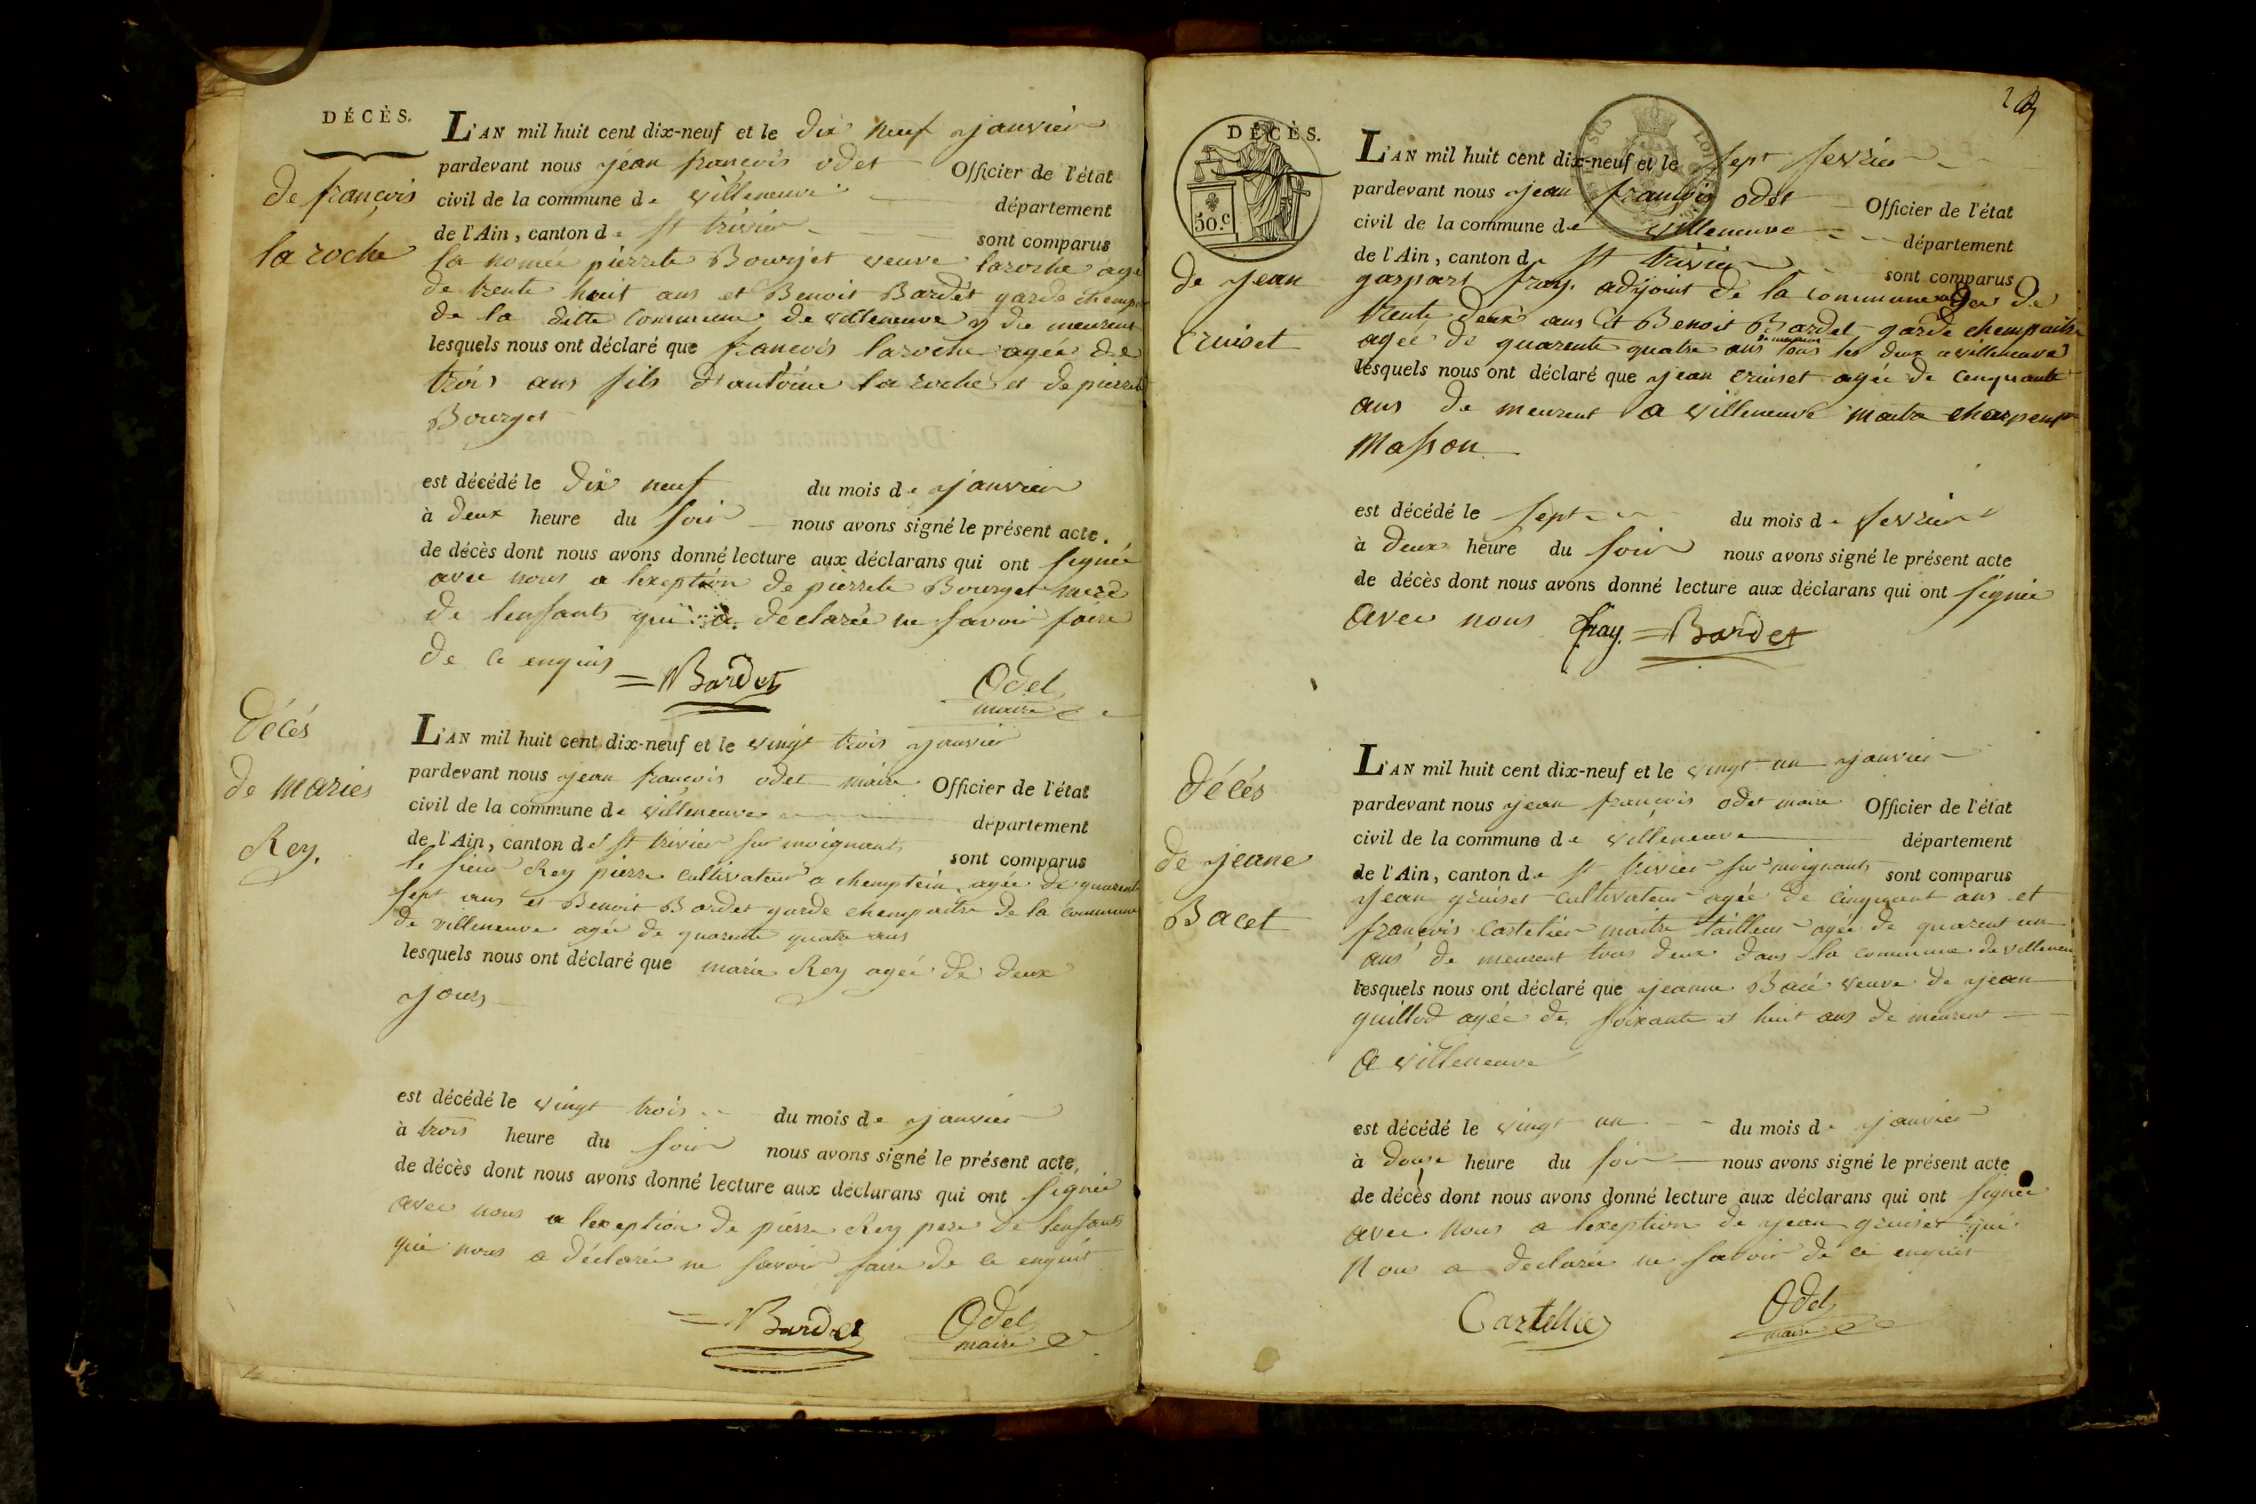 DÉCÈS.
de françois
la roche
L'AN mil huit cent dix-neuf et le dix neuf janvier
pardevant nous jean françois odet Officier de l'état
civil de la commune de villeneuve département
de l'Ain, canton de st trivier sont comparus
la nomée pierrete Bourjet veuve laroche agé
de trente huit ans et Benoit Bardet garde champ
de la ditte Commune de villeneuve y de meurent
lesquels nous ont déclaré que francois laroche agée de
trois ans fils d'antoine la roche et de pierrete
Bourget
est décédé le dix neuf du mois de janvier
à deux heure du soir nous avons signé le présent acte.
de décès dont nous avons donné lecture aux déclarans qui ont signée
avec nous a lexeption de pierrete Bourget mere
de lenfants qui a declarée ne savoir faire
de ce enquis
Bardet
Odet
maire
décés
de maries
Rey.
L'AN mil huit cent dix-neuf et le vingt trois janvier
pardevant nous jean françois odet maire Officier de l'état
civil de la commune de villeneuve département
de l'Ain, canton de st trivier sur moignant sont comparus
le sieur Rey pierre cultivateur a chemptein agée de quarente
sept ans et Benoit Bardet garde chempaitre de la commune
de villeneuve agée de quarente quatre ans
lesquels nous ont déclaré que marie Rey agée de deux
jours
est décédé le vingt trois du mois de janvier
à trois heure du soir nous avons signé le présent acte,
de décès dont nous avons donné lecture aux déclarans qui ont signée
avec nous a lexeption de pierre Rey pere de lenfants
qui nous a déclarée ne savoir faire de ce enquit
Bardet
Odet
maire
DÉCÈS.
50.c
de jean
cruiset
L'AN mil huit cent dix-neuf et le sept fevrier
pardevant nous jean françois odet Officier de l'état
civil de la commune de villeneuve département
de l'Ain, canton de st trivier sont comparus
gaspart fray. adjoint de la commune agée de
trente deux ans et Benoit Bardet garde chempaitre
agée de quarente quatre ans tous les deux a villeneuve
lesquels nous ont déclaré que jean cruiset agée de cenquante
ans de meurent a villeneuve maitre charpent
Masson
est décédé le sept du mois de fevrier
à deux heure du soir nous avons signé le présent acte
de décès dont nous avons donné lecture aux déclarans qui ont signée
avec nous fray. Bardet
décés
de jeane
Bacet
L'AN mil huit cent dix-neuf et le vingt un janvier
pardevant nous jean françois odet maire Officier de l'état
civil de la commune de villeneuve département
de l'Ain, canton de st trivier sur moignants sont comparus
jean gruiset cultivateur agée de cinquant ans et
françois Castelier maitre tailleur agée de quarent un
ans de meurent tous deux dans la commune de villeneu
lesquels nous ont déclaré que jeanne Bacé veuve de jean
guillod agée de soixante et huit ans de meurent
a villeneuve
est décédé le vingt un du mois de janvier
à douse heure du soir nous avons signé le présent acte
de décès dont nous avons donné lecture aux déclarans qui ont signée
avec nous a lexeption de jean gruiset qui
nous a declarée ne savoir de ce enquis
Castellie
Odet
maire